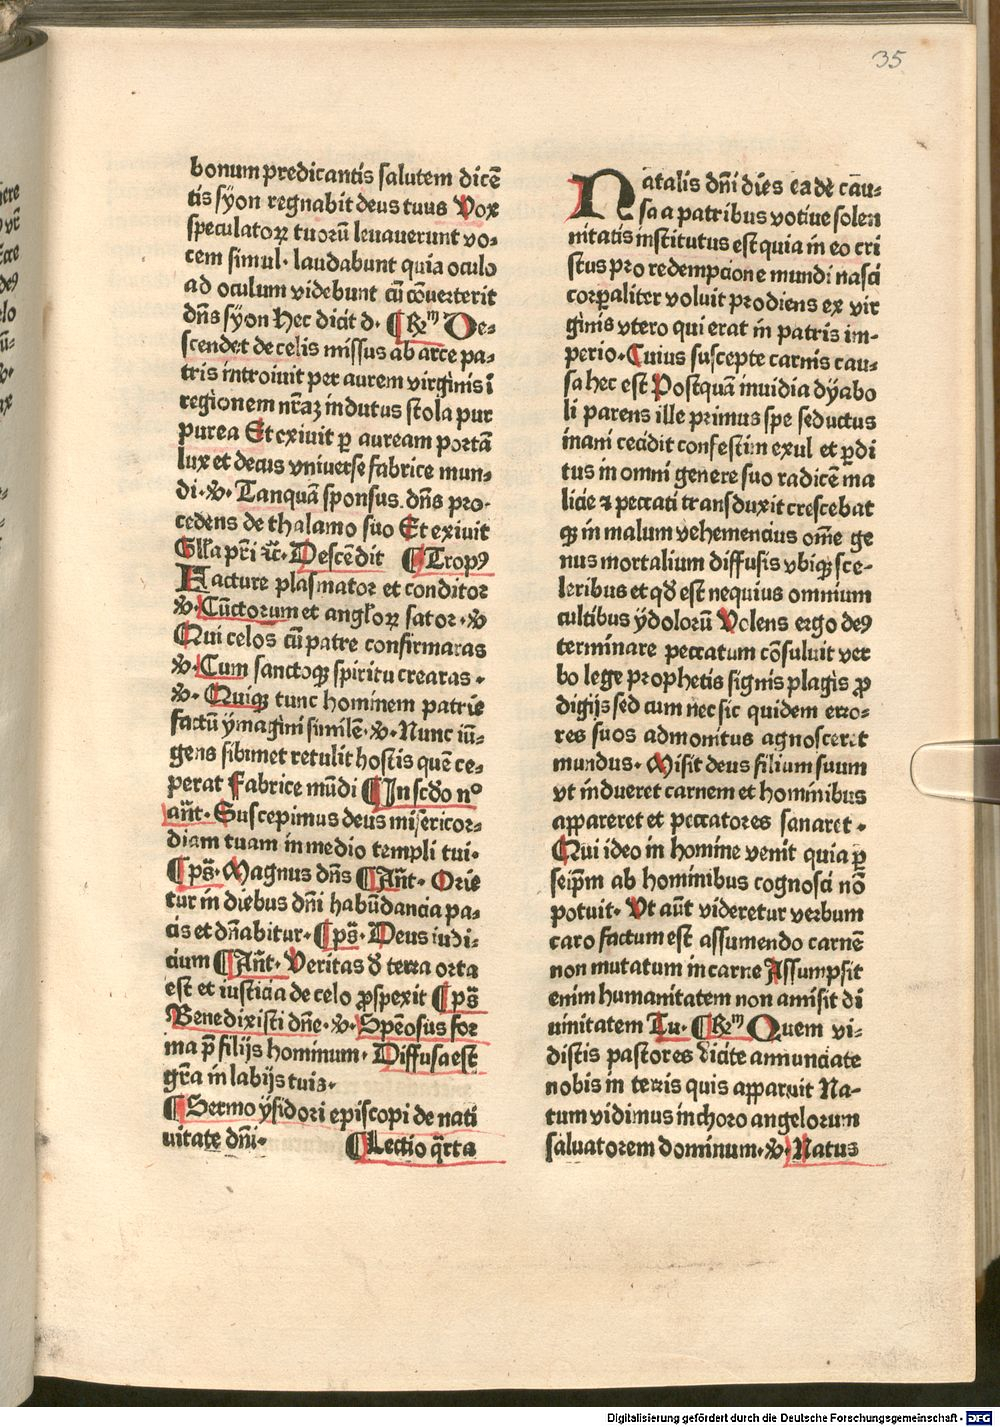 35
bonum predicantis salutem dicē
tis syon regnabit deus tuus Vox
speculatoꝝ tuorū leuauerunt vo⸗
cem simul· laudabunt quia oculo
ad oculum videbunt cū cōuerterit
dn̄s syon hec dicit d· ¶ Rm De⸗
scendet de celis missus ab arce pa⸗
tris introiuit per aurem virginis ī
regionem nr̄aꝫ indutus stola pur
purea Et exiuit ꝑ auream portā
lux et decus vniuerse fabrice mun⸗
di·v· Tanquā sponsus dn̄s pro⸗
cedens de thalamo suo Et exiuit
Gl̄ia pr̄i ⁊c̄· Descēdit ¶ Tropꝰ
Facture plasmator et conditor
v· Cūctorum et angl̄oꝝ sator·v
Qui celos cū patre confirmaras
v· Cum sanctoqꝫ spiritu crearas·
v· Quiqꝫ tunc hominem patrie
factū ymagini similē·v· Nunc iū⸗
gens sibimet retulit hostis quē ce⸗
perat Fabrice mūdi ¶ In scd̄o nº
an̄t· Suscepimus deus misericor⸗
diam tuam in medio templi tui·
¶ ps̄· Magnus dn̄s ¶ An̄t· Orie
tur in diebus dn̄i habūdancia pa⸗
cis et dn̄abitur· ¶ ps̄· Deus iudi⸗
cium ¶ An̄t· Veritas d̄ terra orta
est et iusticia de celo ꝓspexit ¶ ps̄
Benedixisti dn̄e·v· Spēosus for
ma p̄ filijs hominum· Diffusa est
gr̄a in labijs tuis·
¶ Sermo ysidori episcopi de nati
uitate dn̄i· ¶ Lectio q̄rta
Natalis dn̄i dies ea de cāu⸗
sa a patribus votiue solen
nitatis institutus est quia in eo cri
stus pro redempcione mundi nasci
corꝑaliter voluit prodiens ex vir
ginis vtero qui erat in patris im⸗
perio· Cuius suscepte carnis cau⸗
sa hec est Postquā inuidia dyabo
li parens ille primus spe seductus
inani cecidit confestim exul et ꝑdi
tus in omni genere suo radicē ma
licie ⁊ peccati transduxit crescebat
qꝫ in malum vehemencius om̄e ge
nus mortalium diffusis vbiqꝫ sce⸗
leribus et qd̄ est nequius omnium
cultibus ydolorū Volens ergo deꝰ
terminare peccatum cōsuluit ver
bo lege prophetis signis plagis ꝓ
digijs sed cum nec sic quidem erro⸗
res suos admonitus agnosceret
mundus· Misit deus filium suum
vt indueret carnem et hominibus
appareret et peccatores sanaret·
Qui ideo in homine venit quia ꝑ
seip̄m ab hominibus cognosci nō
potuit· Vt aūt videretur verbum
caro factum est assumendo carnē
non mutatum in carne Assumpsit
enim humanitatem non amisit di
uinitatem Tu· ¶ Rm Quem vi⸗
distis pastores dicite annunciate
nobis in terris quis apparuit Na⸗
tum vidimus in choro angelorum
saluatorem dominum·v· Natus
Digitalisierung gefördert durch die Deutsche Forschungsgemeinschaft - DFG